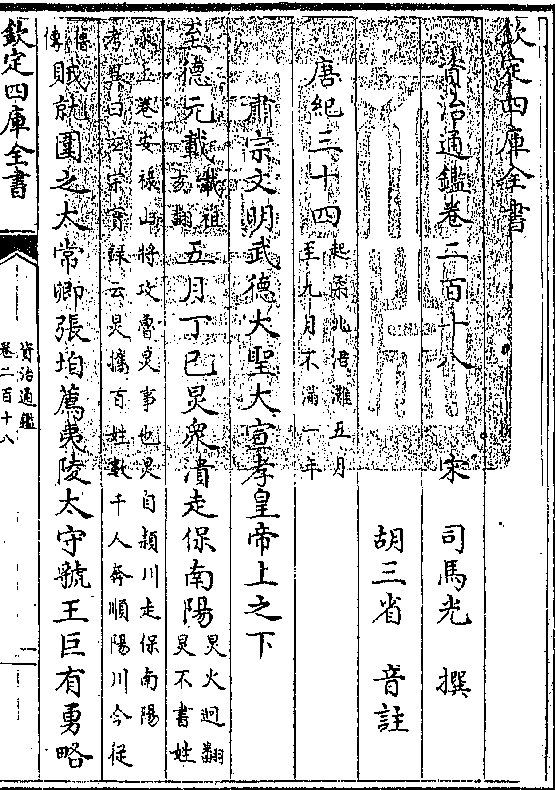 欽定四庫全書
資治通鑑卷二百十八　宋　司馬光　撰
胡三省　音註
唐紀三十四起柔兆涒灘五月至九月不滿一年
肅宗文明武德大聖大宣孝皇帝上之下
至德元載載祖亥翻五月丁巳炅衆潰走保南陽炅火迥翻炅不書姓
承上卷安祿山將攻魯炅事也炅自潁川走保南陽
考異曰玄宗實錄云炅攜百姓數千人奔順陽川今從
舊傳賊就圍之太常卿張垍薦夷陵太守虢王巨有勇略
欽定四庫全書
資治通鑑
卷二百十八
一